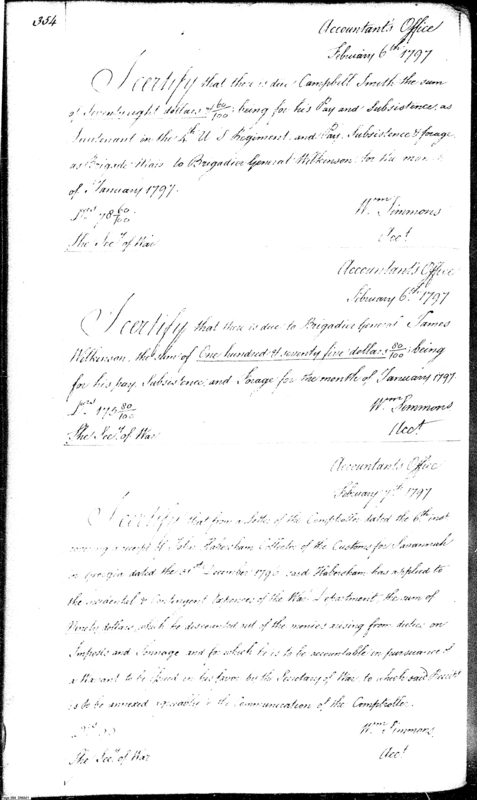 354
Accountant's Office
February 6th 1797
I certify that there is due Campbell Smith the sum
of Seventy eight dollars & 60/100; being for his Pay and Subsistence, as
Lieutenant in the 4th U S Regiment and Pay, Subsistence & forage
as Brigade to Brigadier General Wilkinson for the
of January 1797.
78 60/100
Wm Simmons
The Secy of War
Acct
Accountant's Office
February 6th 1797
I certify that there is due to Brigadier General James
Wilkinson, the sum of One hundred & seventy five dollars 80/100; being
for his pay, Subsistence, and Forage for the month of January 1797.
175 80/100
Wm Simmons
The Secy of War
Acct
Accountant's Office
February 7th 1797
I certify that from a Letter of the Comptroller dated the 6th inst
a receipt of John Habersham Collector of the Customs for Savannah
in Georgia dated the 31st December 1796 said Habersham has applied to
the incidental & Contingent Expences of the War Department, the sum of
Ninety dollars, which he out of the monies arising from duties on
Imposts and Tonnage and for which he is to be accountable in pursuance of
a Warrant to be issued in his favor by the Secretary of War to which said Receipt
is to be annexed agreeable to the Communication of the Comptroller.
Wm Simmons
The Secy of War
Acct